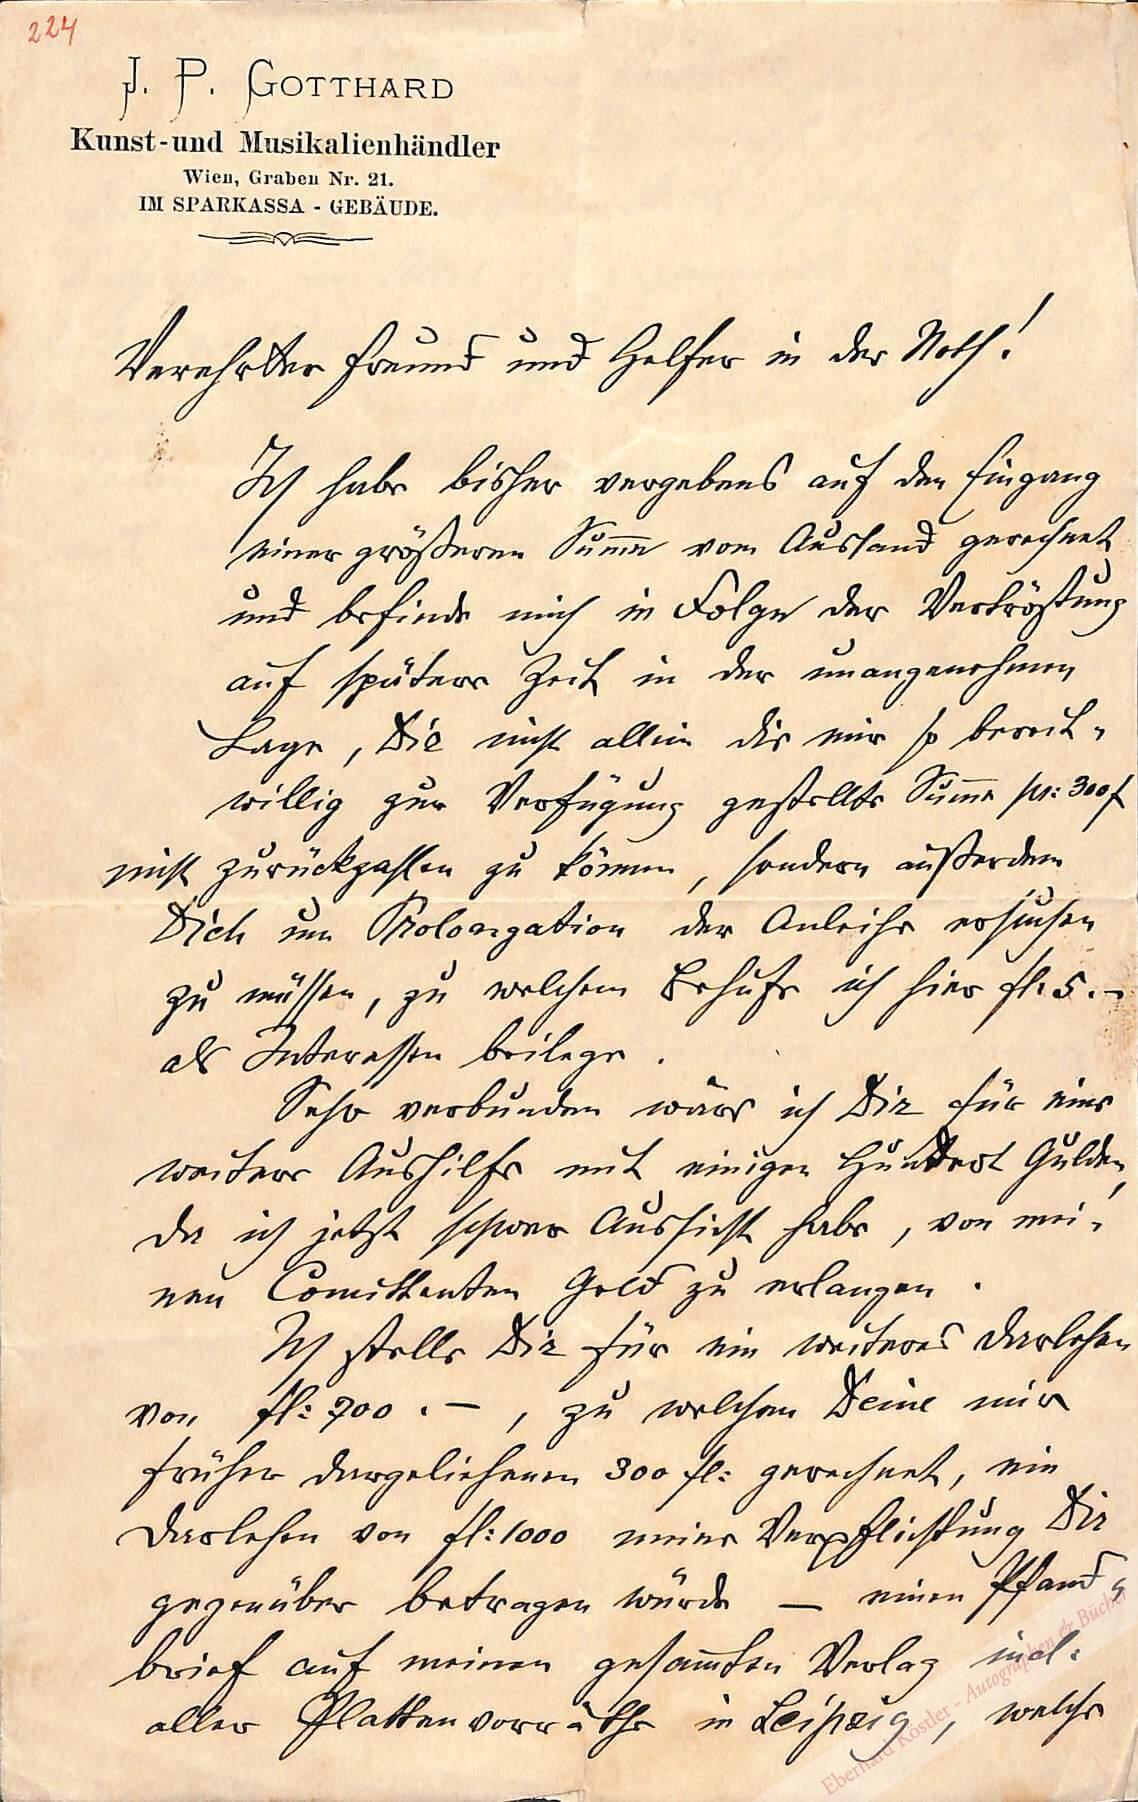 224
J. P. GOTTHARD
Kunst- und Musikalienhändler
Wien, Graben Nr. 21.
IM SPARKASSA - GEBÄUDE.
Verehrter Freund und Helfer in der Noth!
Ich habe bisher vergebens auf den Eingang
einer größeren Summe vom Ausland gerechnet
und befinde mich in Folge der Vertröstung
auf spätere Zeit in der unangenehmen
Lage, Die nicht allein die mir so bereit-
willig zur Verfügung gestellte Summe pr: 300 f
nicht zurückzahlen zu können, sondern außerdem
Dich um Prolongation der Anleihe ersuchen
zu müssen, zu welchem Behufe ich hier fl. 5.–
als Interessen beilege.
Sehr verbunden wäre ich Dir für eine
weitere Aushilfe mit einigen Hundert Gulden,
da ich jetzt schwer Aussicht habe, von mei-
nen Comittenten Geld zu erlangen.
Ich stelle Dir für ein weiteres Darlehen
von fl: 700.–, zu welchem Deine mir
früher dargeliehenen 300 fl: gerechnet, ein
Darlehen von fl: 1000 meine Verpflichtung Dir
gegenüber betragen würde – einen Pfand-
brief auf meinen gesammten Verlag incl.
aller Plattenvorräthe in Leipzig, welche
Eberhard Köstler - Autographen & Bücher